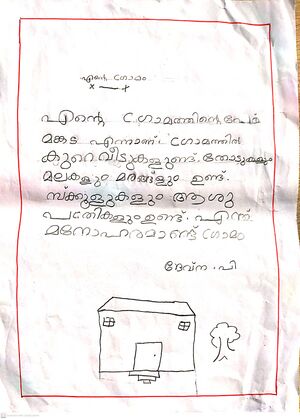 എന്റെ ഗ്രാമം
എന്റെ ഗ്രാമത്തിന്റെ പേര്
മങ്കട എന്നാണ് ഗ്രാമത്തിൽ
കുറെ വീടുകളുണ്ട്. തോടുകളും
മലകളും മരങ്ങളും ഉണ്ട്.
സ്ക്കൂളുകളും ആശു
പത്രികളും ഉണ്ട്. എന്ത്
മനോഹരമാണ്ട് ഗ്രാമം
ദേവ്ന . പി